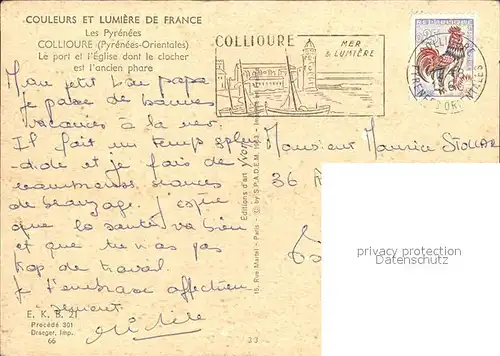 COULEURS ET LUMIÈRE DE FRANCE
Les Pyrénées
COLLIOURE (Pyrénées-Orientales)
Le port et l'Église dont le clocher
est l'ancien phare
Mon petit bon papa
je passe de bonnes
vacances à la mer.
Il fait un temps splen
dide et je fais de
nombreuses séances
de bronzage. J'espère
que la santé va bien
et que tu n'as pas
trop de travail.
Je t'embrasse affectueu
sement
E. K. B. 21
Procédé 301
Draeger, Imp.
66
33
Editions d'art YVON
15, Rue Martel - Paris - © by S.P.A.D.E.M.
COLLIOURE
MER
& LUMIÈRE
COLLIOURE
PYRÉNÉES ORIENTALES
Monsieur Maurice
36
privacy protection
Datenschutz